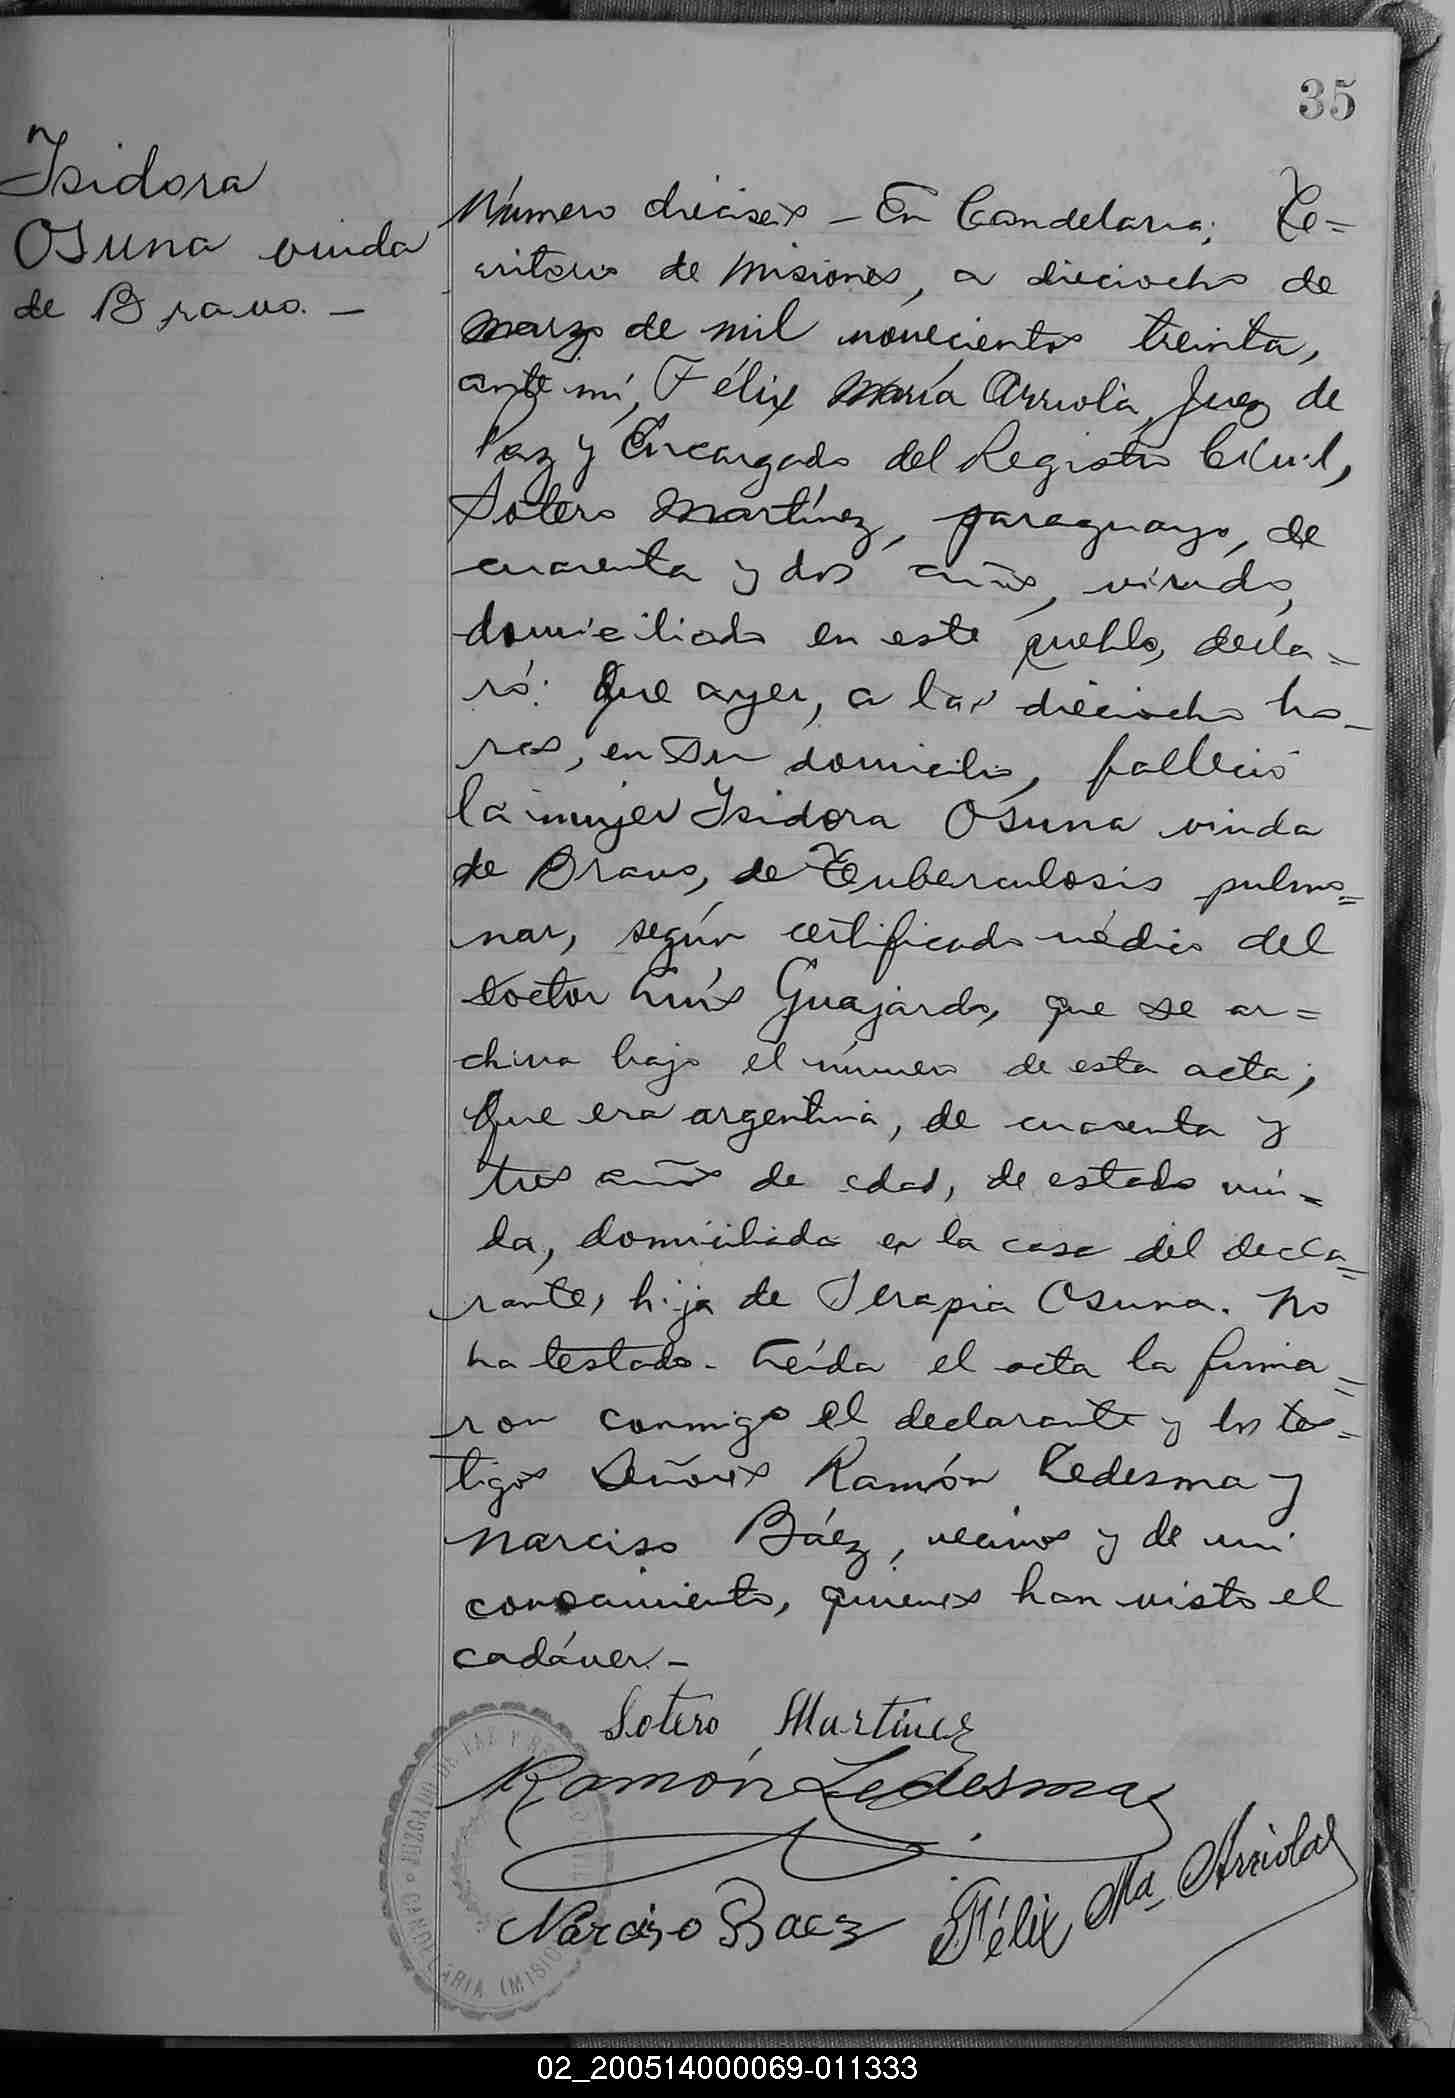 35
Isidora
Osuna viuda
de Bravo. —
Número dieciseis — En Candelaria, Te=
rritorio de Misiones, a dieciocho de
marzo de mil novecientos treinta,
ante mí, Félix María Arriola, Juez de
Paz y Encargado del Registro Civil,
Sotero Martínez, paraguayo, de
cuarenta y dos años, viudo,
domiciliado en este pueblo, decla=
ró: Que ayer, a las dieciocho ho-
ras, en su domicilio, falleció
la mujer Isidora Osuna viuda
de Bravo, de Tuberculosis pulmo=
nar, según certificado médico del
doctor Luís Guajardo, que se ar=
chiva bajo el número de esta acta;
Que era argentina, de cuarenta y
tres años de edad, de estado viu=
da, domiciliada en la casa del decla=
rante, hija de Serapia Osuna. No
ha testado. Leída el acta la firma=
ron conmigo el declarante y los tes=
tigos Señores Ramón Ledesma y
Narciso Báez, vecinos y de mi
conocimiento, quienes han visto el
cadáver. —
Sotero Martinez
Ramón Ledesma
Narciso Baez
Félix Ma Arriola
JUZGADO DE PAZ Y
CANDELARIA (MISIO
02_200514000069-011333